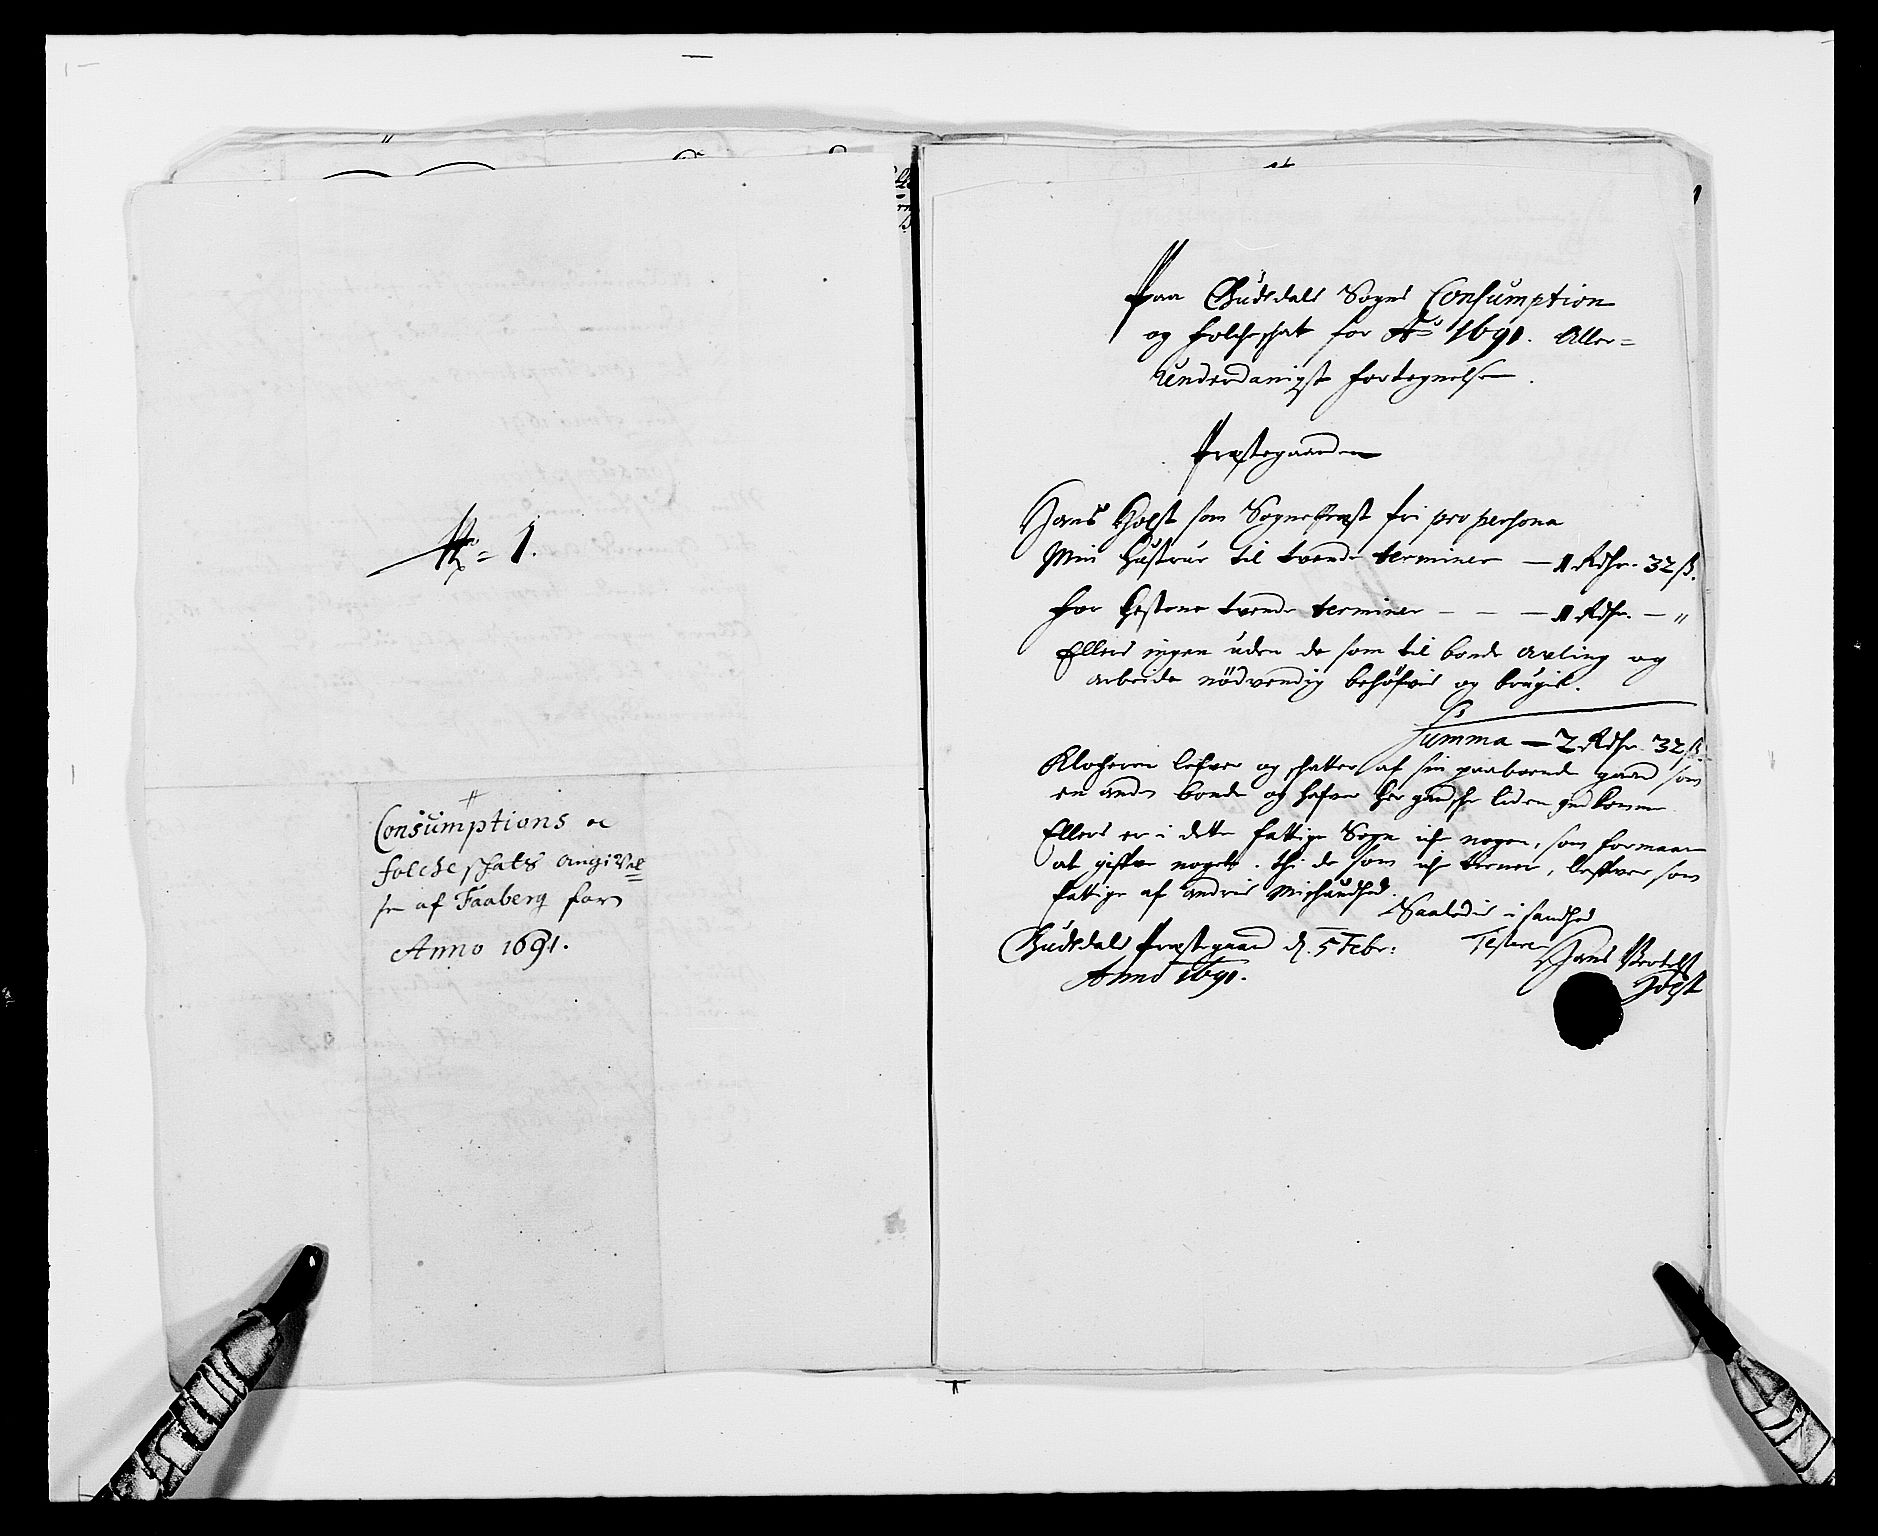 No = 1.
Consumptions oc
folcheschats angivel
se af Faaberg for
Anno 1691.
Paa Gudsdals Sogns Consumption
og folcheschat for Ao 1691. Aller=
underdanigst fortegnelse.
Præstegaarden
Hans Holst som Sognepræst fri pro persona
Min hustrue til tvende terminer — 1 Rdhr. 32 ß.
for hestene tvende terminer — — — 1 Rdhr. — "
Ellers ingen uden de som til bonde avling og
arbeide nödvendig behöfvis og brugis.
Summa — 2 Rdhr. 32 ß
Klocheren lefver og schatter af sin paaboende gaard som
en anden bonde og hafver her gandsche liden indkomme
Ellers er i dette fattige Sogn iche nogen, som formaar
at gifve noget. thi de som iche tiener, lefver som
fattige af andris Mischundhed.
Saaledis i sandhed
Gudsdals Præstegaard d. 5 Febr:
Testerer Hans Bertelss
Anno 1691.
Holst